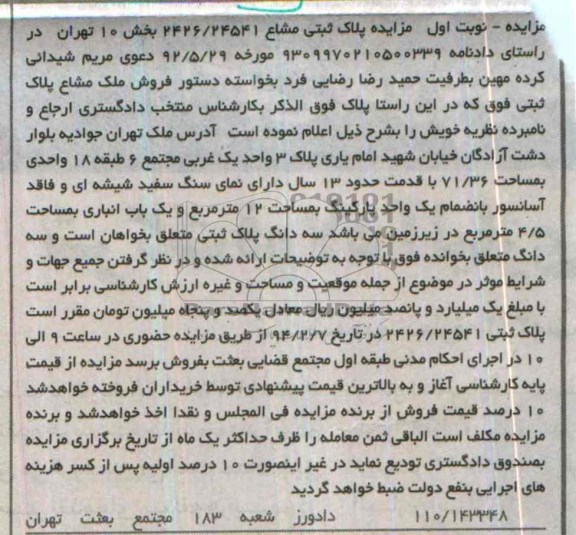 مزایده - نوبت اول   مزایده پلاک ثبتی مشاع ۲۴۲۶/۲۴۵۴۱ بخش ۱۰ تهران   در
راستای دادنامه ۹۳۰۹۹۷۰۲۱۰۵۰۰۳۳۹ مورخه ۹۲/۵/۲۹ دعوی مریم شیدائی
کرده مهین بطرفیت حمید رضا رضایی فرد بخواسته دستور فروش ملک مشاع پلاک
ثبتی فوق که در این راستا پلاک فوق الذکر بکارشناس منتخب دادگستری ارجاع و
نامبرده نظریه خویش را بشرح ذیل اعلام نموده است   آدرس ملک تهران جوادیه بلوار
دشت آزادگان خیابان شهید امام یاری پلاک ۳ واحد یک غربی مجتمع ۶ طبقه ۱۸ واحدی
بمساحت ۷۱/۳۶ با قدمت حدود ۱۳ سال دارای نمای سنگ سفید شیشه ای و فاقد
آسانسور بانضمام یک واحد پارکینگ بمساحت ۱۲ مترمربع و یک باب انباری بمساحت
۴/۵ مترمربع در زیرزمین می باشد سه دانگ پلاک ثبتی متعلق بخواهان است و سه
دانگ متعلق بخوانده فوق با توجه به توضیحات ارائه شده و در نظر گرفتن جمیع جهات و
شرایط موثر در موضوع از جمله موقعیت و مساحت و غیره ارزش کارشناسی برابر است
با مبلغ یک میلیارد و پانصد میلیون ریال معادل یکصد و پنجاه میلیون تومان مقرر است
پلاک ثبتی ۲۴۲۶/۲۴۵۴۱ در تاریخ ۹۴/۲/۷ از طریق مزایده حضوری در ساعت ۹ الی
۱۰ در اجرای احکام مدنی طبقه اول مجتمع قضایی بعثت بفروش برسد مزایده از قیمت
پایه کارشناسی آغاز و به بالاترین قیمت پیشنهادی توسط خریداران فروخته خواهدشد
۱۰ درصد قیمت فروش از برنده مزایده فی المجلس و نقدا اخذ خواهدشد و برنده
مزایده مکلف است الباقی ثمن معامله را ظرف حداکثر یک ماه از تاریخ برگزاری مزایده
بصندوق دادگستری تودیع نماید در غیر اینصورت ۱۰ درصد اولیه پس از کسر هزینه
های اجرایی بنفع دولت ضبط خواهد گردید
۱۱۰/۱۴۳۳۴۸   دادورز شعبه ۱۸۳ مجتمع بعثت تهران